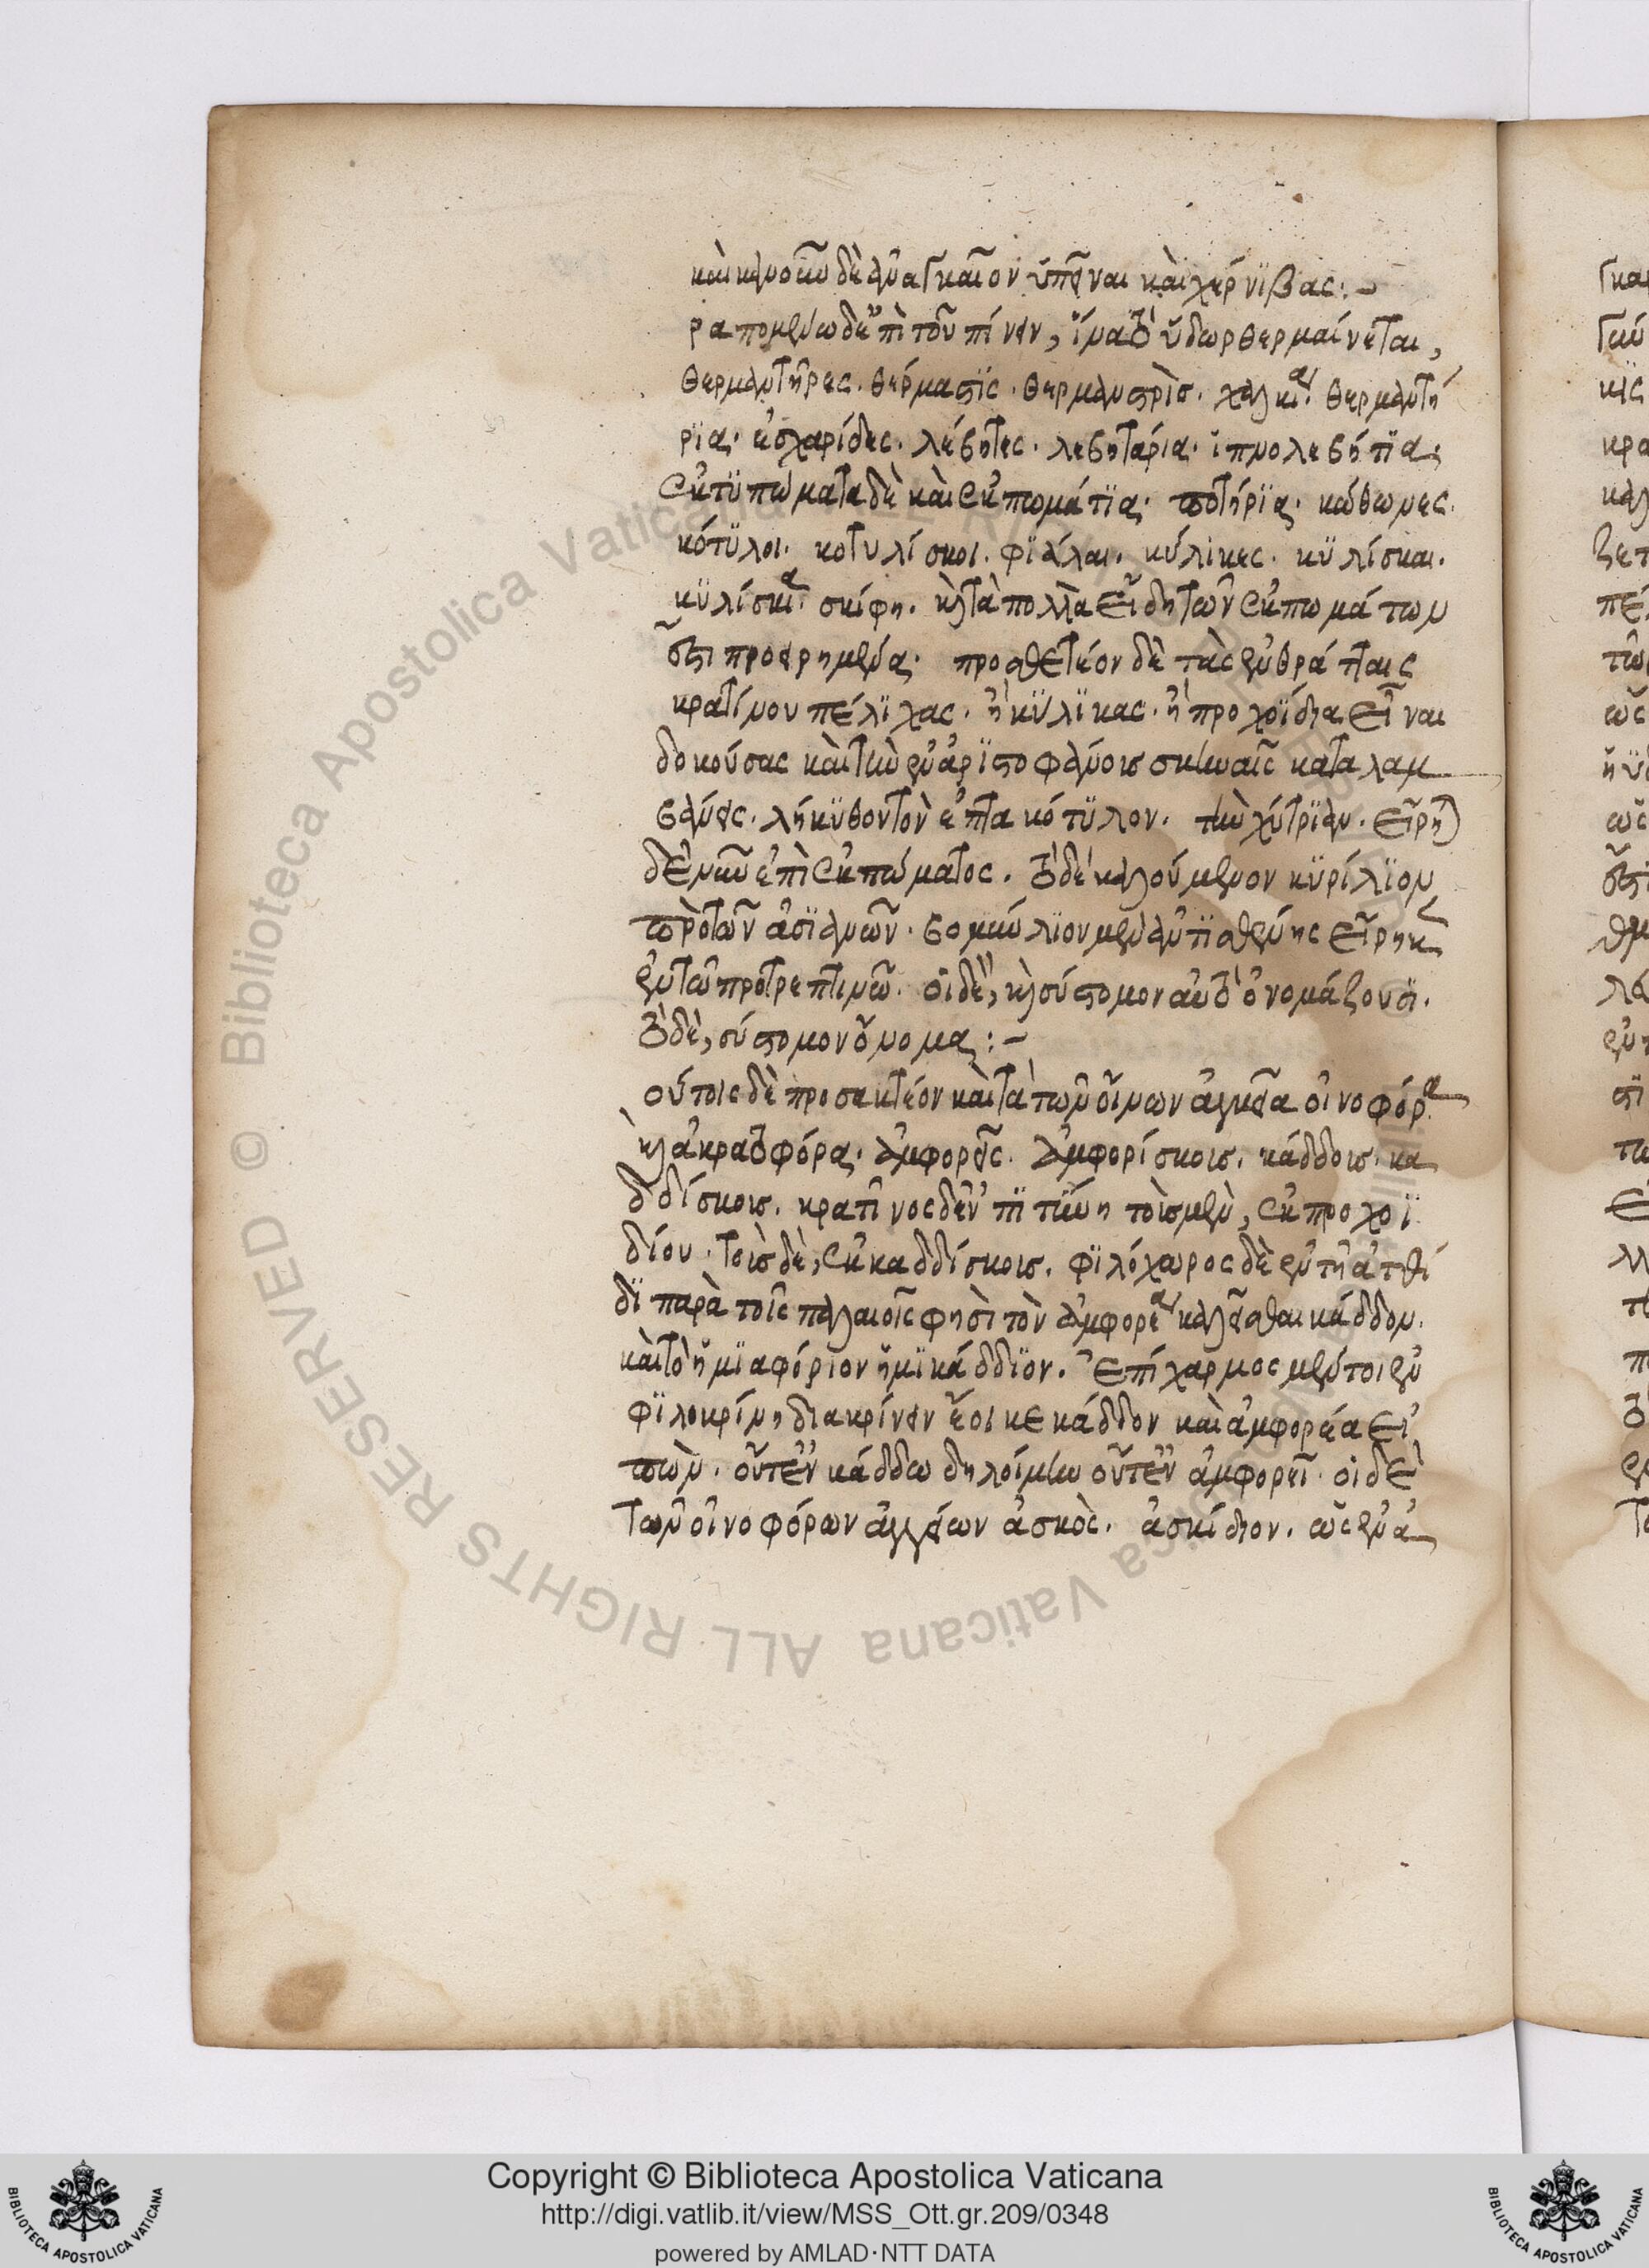 καὶ κανοῦν δὲ ἀναγκαῖον ὑπεῖναι καὶ χέρνϊβας:–
ρα πομένω δ' ἐπὶ τοῦ πίνειν, ἵνα τὸ ὕδωρ θερμαίνεται,
θερμαντῆρες. θέρμαστϊς. θερμανστρὶσ. χαλκία. θερμαντή
ρϊα. ἐσχαρίδες. λέβητες. λεβητάρια. ἱπνολεβήτϊα.
ἐκτϋπώματα δὲ καὶ ἐκπωμάτϊα. ποτήρϊα. κώθωνες.
κότϋλοι. κοτυλίσκοι. φϊάλαι. κύλικες. κϋλίσκαι.
κϋλίσκια. σκίφη. καὶ τὰ πολλὰ εἴδη τῶν ἐκπωμάτων
ἔστι προειρημένα. προσθετέον δὲ τὰς ἐν θράτταις
κρατίνου πέλϊχας. ἢ κϋλϊκας. ἢ προχοΐδια εἶναι
δοκούσας καὶ τὴν ἐν ἀρϊστοφάνοισ σκηναῖς καταλαμ
βάνεις. λήκϋθον τὸν ἑπτακότϋλον. τὴν χύτρϊαν. εἴρη
δὲ νῦν ἐπὶ ἐκπώματος. τὸ δὲ καλούμενον κϋρίλϊον
πρὸ τῶν ἀσϊανῶν. βομβύλϊον μὲν ἀντϊσθένης εἴρηκεν
ἐν τῶ προτρεπτικῶ. οἱ δὲ, καὶ σύστομον αὐτὸ ὀνομάζουσϊ.
τὸ δὲ, σύστομον ὄνομα:–
οὕτοις δὲ προσακτέον καὶ τὰ τῶν οἴνων ἀγγεῖα οἰνοφόρα
καὶ ἀκρατοφόρα. ἀμφορεῖς. ἀμφορίσκοισ. κάδδοισ. κα
δδίσκοισ. κρατῖνος δ' ἐν πϊτίνη τοῖσ μὲν, ἐκ προχοϊ
δίου. τοῖσ δὲ, ἐκ καδδίσκοισ. φϊλόχωρος δὲ ἐν τῆ ἀτθί
δϊ παρὰ τοῖς παλαιοῖς φησὶ τὸν ἀμφορέα καλεῖσθαι κάδδον.
καὶ τὸ ἡμϊαφόριον ἡμϊκάδδϊον. Ἐπίχαρμος μέντοι ἐν
φϊλοκρίνη διακρίνειν ἔοικε κάδδον καὶ ἀμφορέα εἰ
πὼν. οὔτ' ἐν κάδδω δηλοίμην οὔτ' ἐν ἀμφορεῖ. οἱ δὲ
τῶν οἰνοφόρων ἀγγείων ἀσκὸς. ἀσκίδιον. ὡς ἐν ἀ